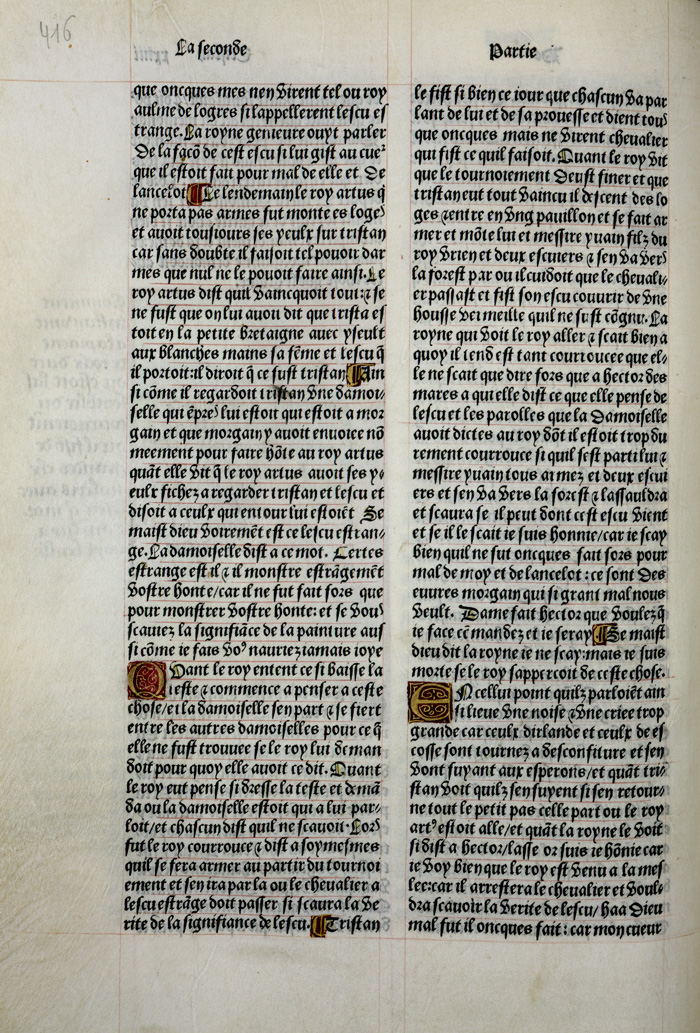 416
La seconde
Partie
que oncques mes nen virent tel ou roy
aulme de logres si lappellerent lescu es
trange. La royne genieure ouyt parler
De la facõ de cest escu si lui gist au cueꝰ
que il estoit fait pour mal de elle et De
lancelot ¶ Le lendemain le roy artus q̃
ne porta pas armes fut monte es logeꝰ
et auoit tousiours ses yeulx sur tristan
car sans doubte il faisoit tel pouoir dar
mes que nul ne le pouoit faire ainsi. Le
roy artus dist quil vaincquoit tout: ⁊ se
ne fust que on lui auoit dit que trista es
toit en la petite bretaigne auec yseult
aux blanches mains sa fẽme et lescu q̃
il portoit: il diroit q̃ ce fust tristan ¶ Ain
si cõme il regardoit tristan vne damoi/
selle qui ẽpreꝰ lui estoit qui estoit a mor
gain et que morgain y auoit enuoiee nõ
meement pour faire hõte au roy artus
quãt elle vit q̃ le roy artus auoit ses y/
eulx fichez a regarder tristan et lescu et
disoit a ceulx qui entour lui estoiẽt Se
maist dieu voiremẽt est ce lescu estran/
ge. La damoiselle dist a ce mot. Certes
estrange est il ⁊ il monstre estrãgemẽt
vostre honte/car il ne fut fait fors que
pour monstrer vostre honte: et se vouꝰ
scauiez la signifiãce de la painture aus
si cõme ie fais voꝰ nauriez iamais ioye
Quant le roy entent ce si baisse la
teste ⁊ commence a penser a ceste
chose/et la damoiselle sen part ⁊ se fiert
entre les autres damoiselles pour ce q̃
elle ne fust trouuee se le roy lui deman
doit pour quoy elle auoit ce dit. Quant
le roy eut pense si dresse la teste et demã
da ou la damoiselle estoit qui a lui par/
loit/et chascun dist quil ne scauoit. Lorꝰ
fut le roy courrouce ⁊ dist a soymesmes
quil se fera armer au partir du tournoi
ement et sen ira par la ou le cheualier a
lescu estrãge doit passer si scaura la ve
rite de la signifiance de lescu. ¶ Tristan
le fist si bien ce iour que chascun va par
lant de lui et de sa prouesse et dient touꝰ
que oncques mais ne virent cheualier
qui fist ce quil faisoit. Quant le roy vit
que le tournoiement Deust finer et que
tristan eut tout vaincu il descent des lo
ges ⁊ entre en vng pauillon et se fait ar
mer et mõte lui et messire yuain filz du
roy vrien et deux escuiers ⁊ sen va verꝰ
la forest par ou il cuidoit que le cheuali/
er passast et fist son escu couurir de vne
housse vermeille quil ne fust cõgnu. La
royne qui voit le roy aller ⁊ scait bien a
quoy il tend est tant courroucee que el/
le ne scait que dire fors que a hector des
mares a qui elle dist ce que elle pense de
lescu et les parolles que la Damoiselle
auoit dictes au roy dõt il estoit trop du
rement courrouce si quil sest parti lui ⁊
messire yuain tous armez et deux escui
ers et sen va vers la forest ⁊ lassauldra
et scaura se il peut dont cest escu vient
et se il le scait ie suis honnie/car ie scay
bien quil ne fut oncques fait fors pour
mal de moy et de lancelot: ce sont Des
euures morgain qui si grant mal nous
veult. Dame fait hector que voulez q̃
ie face cõmandez et ie feray ¶ Se maist
dieu dit la royne ie ne scay: mais ie suis
morte se le roy sappercoit de ceste chose.
En cellui point quilz parloiẽt ain
si lieue vne noise ⁊ vne criee trop
grande car ceulx dirlande et ceulx de es
cosse sont tournez a desconfiture et sen
vont fuyant aux esperons/et quãt tri/
stan voit quilz sen fuyent si sen retour/
ne tout le petit pas celle part ou le roy
artꝰ estoit alle/et quãt la royne le voit
si dist a hector/lasse or suis ie hõnie car
ie voy bien que le roy est venu a la mes
lee: car il arrestera le cheualier et voul/
dra scauoir la verite de lescu/ haa Dieu
mal fut il oncques fait: car mon cueur